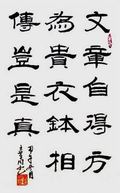 文章自得方
為貴衣鉢相
傳豈是真